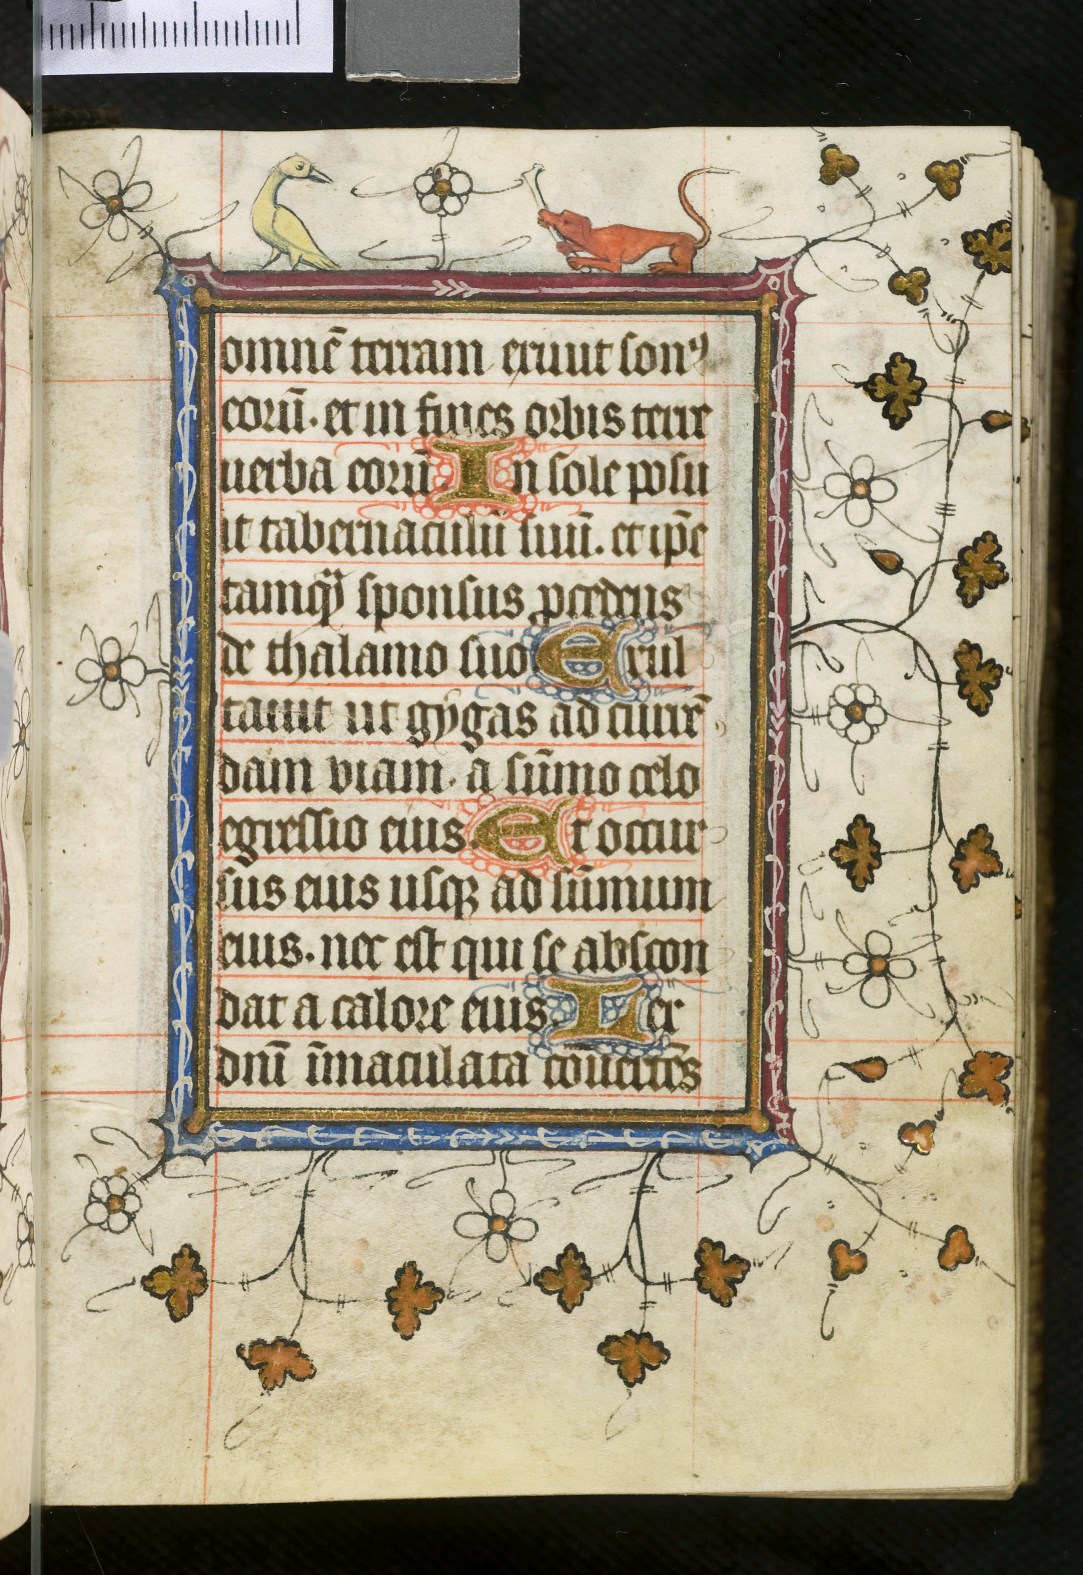 omnē terram exiuit sonꝰ
eorū. et in fines orbis terre
uerba eorū. In sole posu
it tabernaculū suū. et ip̄e
tamqͣȝ sponsus ꝓcedens
de thalamo suo. Exul
tauit ut gygas ad currē
dam viam. a sūmo celo
egressio eius. Et occur
sus eius usqꝫ ad sūmum
eius. nec est qui se abscon
dat a calore eius. Lex
dnī īmaculata cōuertēs